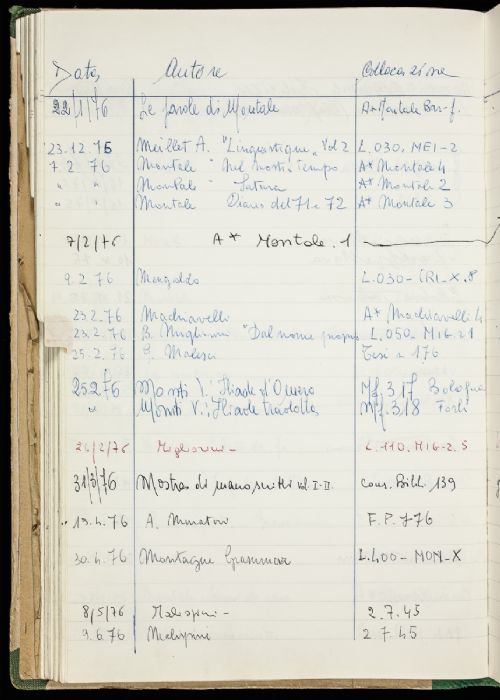 Data, Autore Collocazione
22/1/76 Le parole di Montale A* Montale Bon-f.
23.12.75 Meillet A. "Linguistique„ Vol 2 L.030. MEI-2
7 2 76 Montale "Nel nostro tempo A* Montale 4
" " Montale Satura A* Montale 2
" " Montale Diario del 71 e 72 A* Montale 3
7/2/76 A* Montale. 1
9.2 76 Mengaldo L.030-
23.2.76 Machiavelli A* Machiavelli 4
23.2.76 B. Migliorini "Dal nome proprio L.050. MIG.21
25.2.76 G. Tesi n 176
25.2.76 Monti V.: Iliade d'Omero Mf. 317 Bologna
" Monti V.: Iliade tradotta Mf. 318 Forlì
26/2/76 Migliorini - L.110.MIG-2.5
31/3/76 Mostra di manoscritti vol. I-II cons. Bibl. 139
13.4.76 A. Muratori F.P. 776
30.4.76 Montague Grammar L.400-MON-X
8/5/76 Malispini - 2.7.45
9.6.76 Malispini 2 7.45